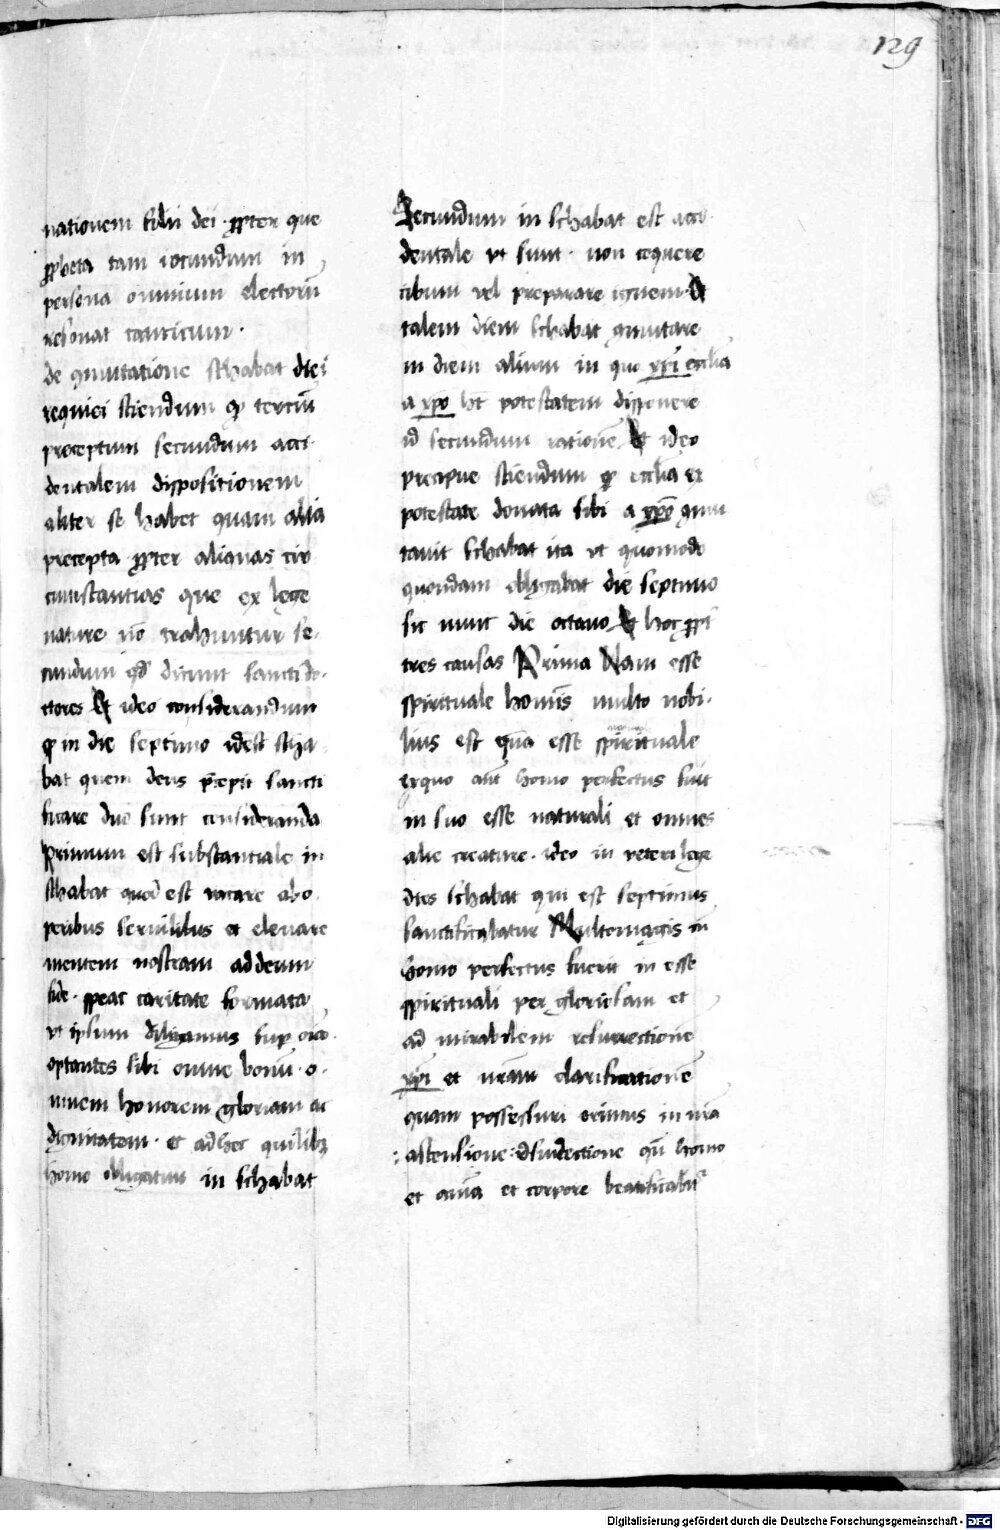 129
nationem filii dei · ꝓpter que
ꝓpheta tam iocundum in
persona omnium electorū
resonat canticum ·
de qmutatione schabat diei
requiei sciendum ꝙ terciū
preceptum secundum acci
dentalem dispositionem
aliter se habet quam alia
precepta ꝓpter aliquas cir
cumstantias que ex lege
nature nō trahuntur se-
cundum qd dicunt sancti do-
ctores Et ideo considerandum
ꝙ in die septimo idest scha
bat quem deus p̄cepit sancti
ficare due sunt consideranda
Primum est substantiale in
schabat quod est vacare abo
peribus seruilibus et eleuare
mentem nostram addeum
fide · speac caritate formata
vt ipsum diligamus sup oīa
optantes sibi omne bonū · o-
mnem honorem gloriam ac
dignitatem · et adhec quilibꝫ
homo obligatur in schabat
Secundum in schabat est acci
dentale vt sunt · non coquere
cibum vel preparare ignem · Et
talem diem schabat qmutare
in diem alium in quo xpi ecclīa
a xpo ht potestatem disponere
id secundum rationē Et ideo
precipue sciendum ꝙ ecclīa ex
potestate donata sibi a xpo qmu
tauit schabat ita vt quomodo
quondam obligabat die septimo
sic nunc die octauo Et hoc ꝓpt
tres causas Prima Nam esse
spirituale homīs multo nobi-
lius est qua esse spirituale
exquo aūt homo perfectus fuit
in suo esse naturali et omnes
alie creature · ideo in veteri lege
dies schabat qui est septimus
sanctificabatur Multomagis in
homo perfectus fuerit in esse
spirituali per gloriosam et
ad mirabilem resurrectionē
xpi et nram clarificationē
quam possessuri erimus in nra
ascensione : resurrectione qn homo
et aīa et corpore beatificabit